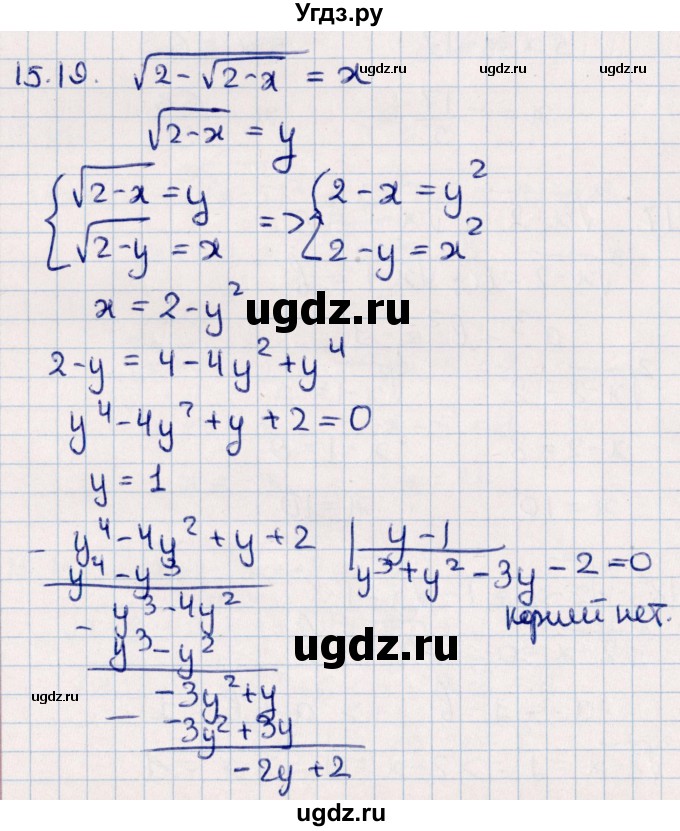 Угдз.ру
15.19. √(2-√(2-x)) = x
ugdz.ru ugdz.ru
√(2-x) = y
{ √(2-x) = y => { 2-x = y²
√(2-y) = x 2-y = x²
x = 2-y²
ugdz.ru
2-y = 4-4y²+y⁴
y⁴-4y²+y+2=0
y = 1
- y⁴-4y²+y+2 | y-1
y⁴-y³ y³+y²-3y-2=0
- y³-4y² корней нет.
y³-y²
ugdz.ru
ugdz.ru ugdz.ru
-3y²+y
- -3y²+3y
-2y+2
ugdz.ru